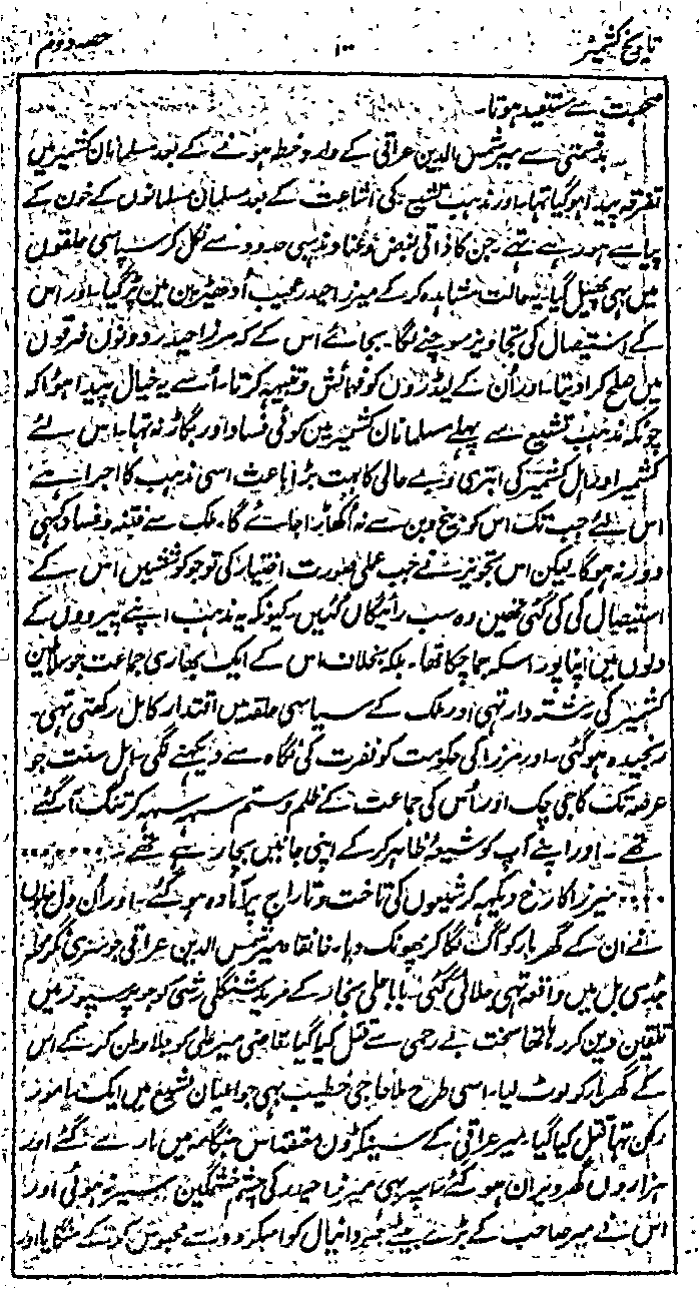 تاریخ کشمیر ۱۰۰ حصہ دوم
صحبت سے مستفید ہوتا۔
بدقسمتی سے میر شمس الدین عراقی کے وارد خطہ ہونے کے بعد مسلمانان کشمیر میں
تفرقہ پیدا ہوگیا تہا۔ اور مذہب تشیع کی اشاعت کے بعد مسلمان مسلمانوں کے خون کے
پیاسے ہورہے تہے۔ جن کا ذاتی بغض وعناد مذہبی حدود سے نکل کر سیاسی حلقوں
میں بہی پھیل گیا۔ یہ حالت مشاہدہ کرکے میرزا حیدر عجیب اُدھیڑ بن مین پڑگیا۔ اور اس
کے استیصال کی تجاویز سوچنے لگا۔ بجائے اس کے کہ مرزا حیدر دونون فرقوں
میں صلح کرا دیتا۔ اور اُن کے لیڈروں کو فہمائش و تفہیم کرتا۔ اُسے یہ خیال پیدا ہوا کہ
چونکہ مذہب تشیع سے پہلے مسلمانان کشمیر مین کوئی فساد اور بگاڑ نہ تہا۔ اس لئے
کشمیر اور اہل کشمیر کی ابتری وبے حالی کا بہت بڑا باعث اسی مذہب کا اجرا ہے
اس لئے جب تک اس کو بیخ وبن سے نہ اُکھاڑا جائے گا۔ ملک سے فتنہ و فساد کبہی
دور نہ ہوگا۔ لیکن اس تجویز نے جب عملی صورت اختیار کی تو جو کوششیں اس کے
استیصال کی کی گئی تھین وہ سب رائیگاں گئیں۔ کیونکہ یہ مذہب اپنے پیرووں کے
دلوں میں اپنا پورا سکہ جما چکا تھا۔ بلکہ بخلاف اس کے ایک بھاری جماعت جو سلاطین
کشمیر کی رشتہ دار تہی اور ملک کے سیاسی حلقہ میں اقتدار کامل رکھتی تہی۔
رنجیدہ ہوگئی۔ اور مرزا کی حکومت کو نفرت کی نگاہ سے دیکہنے لگی۔ اہل سنت جو
عرصہ تک کاجی چک اور اُس کی جماعت کے ظلم وستم سہہ سہہ کر تنگ آگئے
تھے۔ اور اپنے آپ کو شیعہ ظاہر کرکے اپنی جانیں بچا رہے تھے۔ ........
.... میرزا کا رخ دیکہہ کر شیعوں کی تاخت و تاراج پر آمادہ ہوگئے۔ اور اُن
نے ان کے گھر بار کو آگ لگا کر پھونک دیا۔ خانقاہ میر شمس الدین عراقی جو سری نگر محلہ
جڈی بل میں واقعہ تہی جلائی گئی۔ بابا علی نجار کے مرید شنگلی رشی کو جو پرسپور میں
تلقین دین کر رہا تھا سخت بے رحمی سے قتل کیا گیا۔ قاضی میر علی کو جلاوطن کرکے اس
کے گھر بار کو لوٹ لیا۔ اسی طرح ملا حاجی خطیب بہی جو اعیان تشیع میں ایک نامور
رکن تہا قتل کیا گیا۔ میر عراقی کے سینکڑوں معتقد اس ہنگامہ میں مارے گئے اور
ہزاروں گھر ویران ہو گئے تاہم بہی میرزا حیدر کی چشم خشمگین سیر نہ ہوئی اور
اس نے میر صاحب کے بڑے بیٹے میر دانیال کو اسکردو سے محبوس کرکے منگایا اور